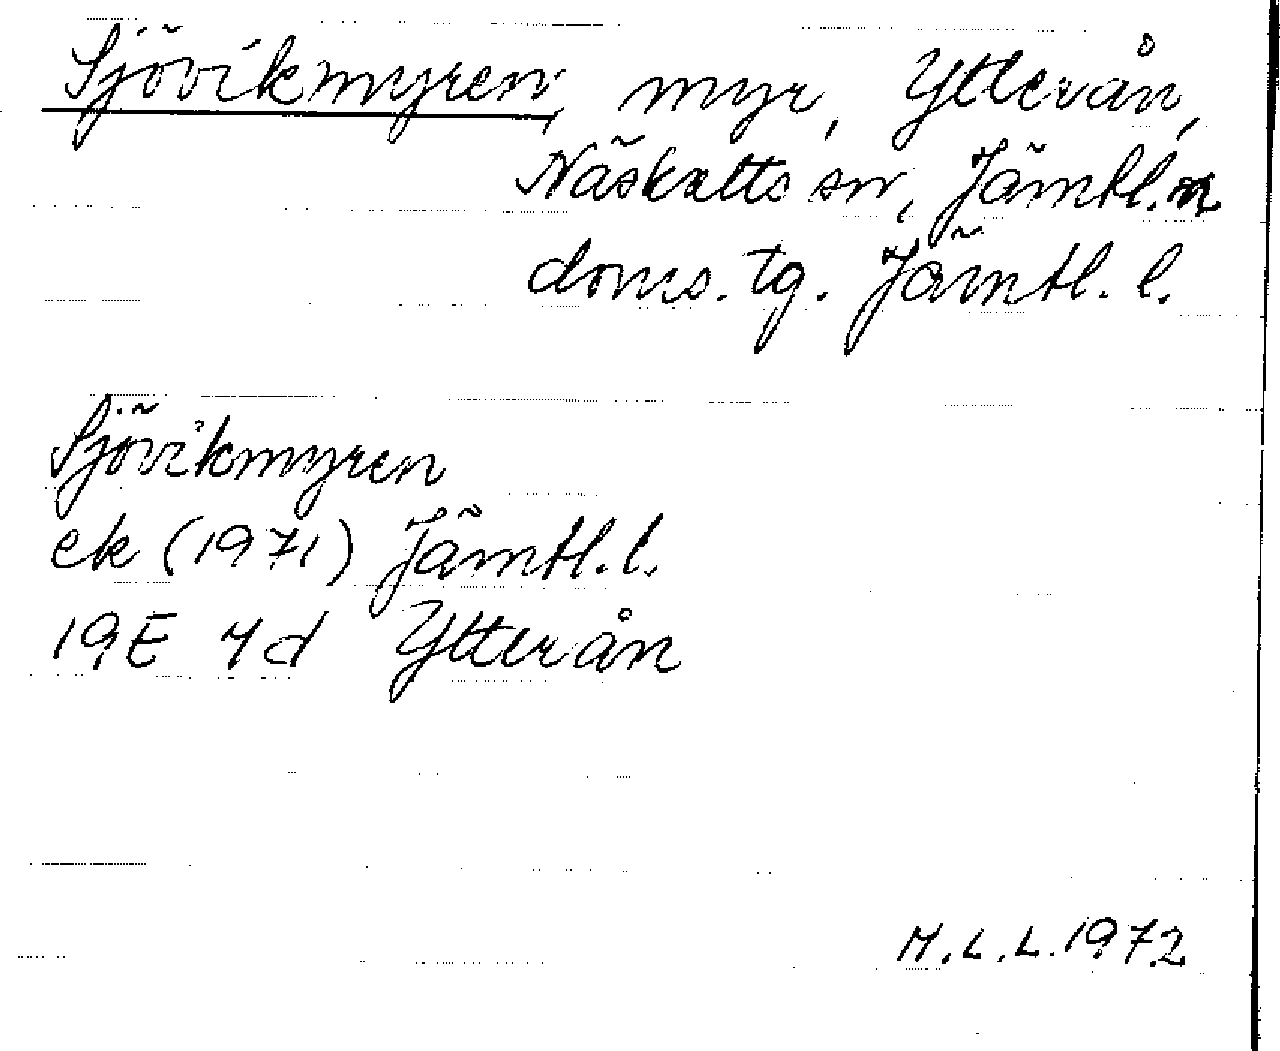 Sjövikmyren, myr, Ytterån,
Näskotts sn, Jämtl. n
doms. tg. Jämtl. l.
Sjövikmyren
ek (1971) Jämtl. l.
19E 4d Ytterån
M.L.L. 1972